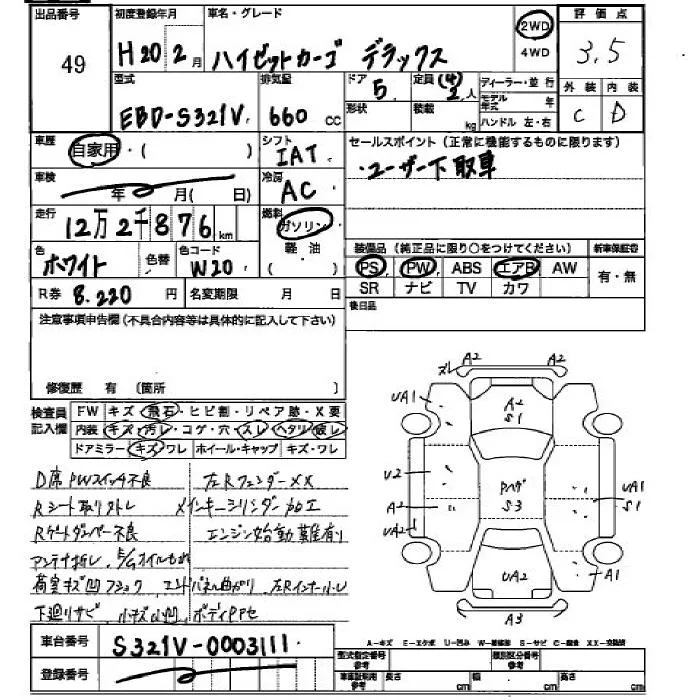 出品番号 49
初度登録年月 H20 2月
車名・グレード ハイゼットカーゴ デラックス
2WD
4WD
評価点 3.5
外装 C 内装 D
型式 EBD-S321V
排気量 660 cc
ドア 5
形状
定員 (4) 2人
積載 kg
ディーラー・並行
モデル年式 年
ハンドル 左・右
車歴 自家用・( )
シフト IAT
車検 年 月( 日)
冷房 AC
走行 12万2千876km
燃料 ガソリン・軽油( )
色 ホワイト 色替 色コード W20
R券 8.220円 名変期限 月 日
セールスポイント(正常に機能するものに限ります)
・ユーザー下取車
装備品(純正品に限り○をつけてください) 新車保証書
PS PW ABS エアB AW
SR ナビ TV カワ
有・無
後日品
注意事項申告欄(不具合内容等は具体的に記入して下さい)
修復歴 有(箇所 )
検査員記入欄
FW キズ・飛石・ヒビ割・リペア跡・X要
内装 キズ・汚レ・コゲ・穴・スレ・ヘタリ・破レ
ドアミラー キズ・ワレ ホイール・キャップ キズ・ワレ
D席PWスイッチ不良 左RフェンダーXX
Rシート取リトレ メインキーシリンダー加工
Rゲートダンパー不良 エンジン始動難有り
アンテナ折レ E/Gオイルもれ
荷室キズ凹 エンドパネル曲がり
下廻リサビ 小キズ小凹
車台番号 S321V-0003111
登録番号
A2 A2
ズレ
UA1
A2
S1
U2
A2
UA2
S3
UA1
S1
UA2
A1
A3
A-キズ E-エクボ U-凹み W-補修跡 S-サビ C-腐食 XX-交換済
型式指定番号 参考 類別区分番号 参考
車庫証明用 参考 長さ cm 幅 cm 高さ cm